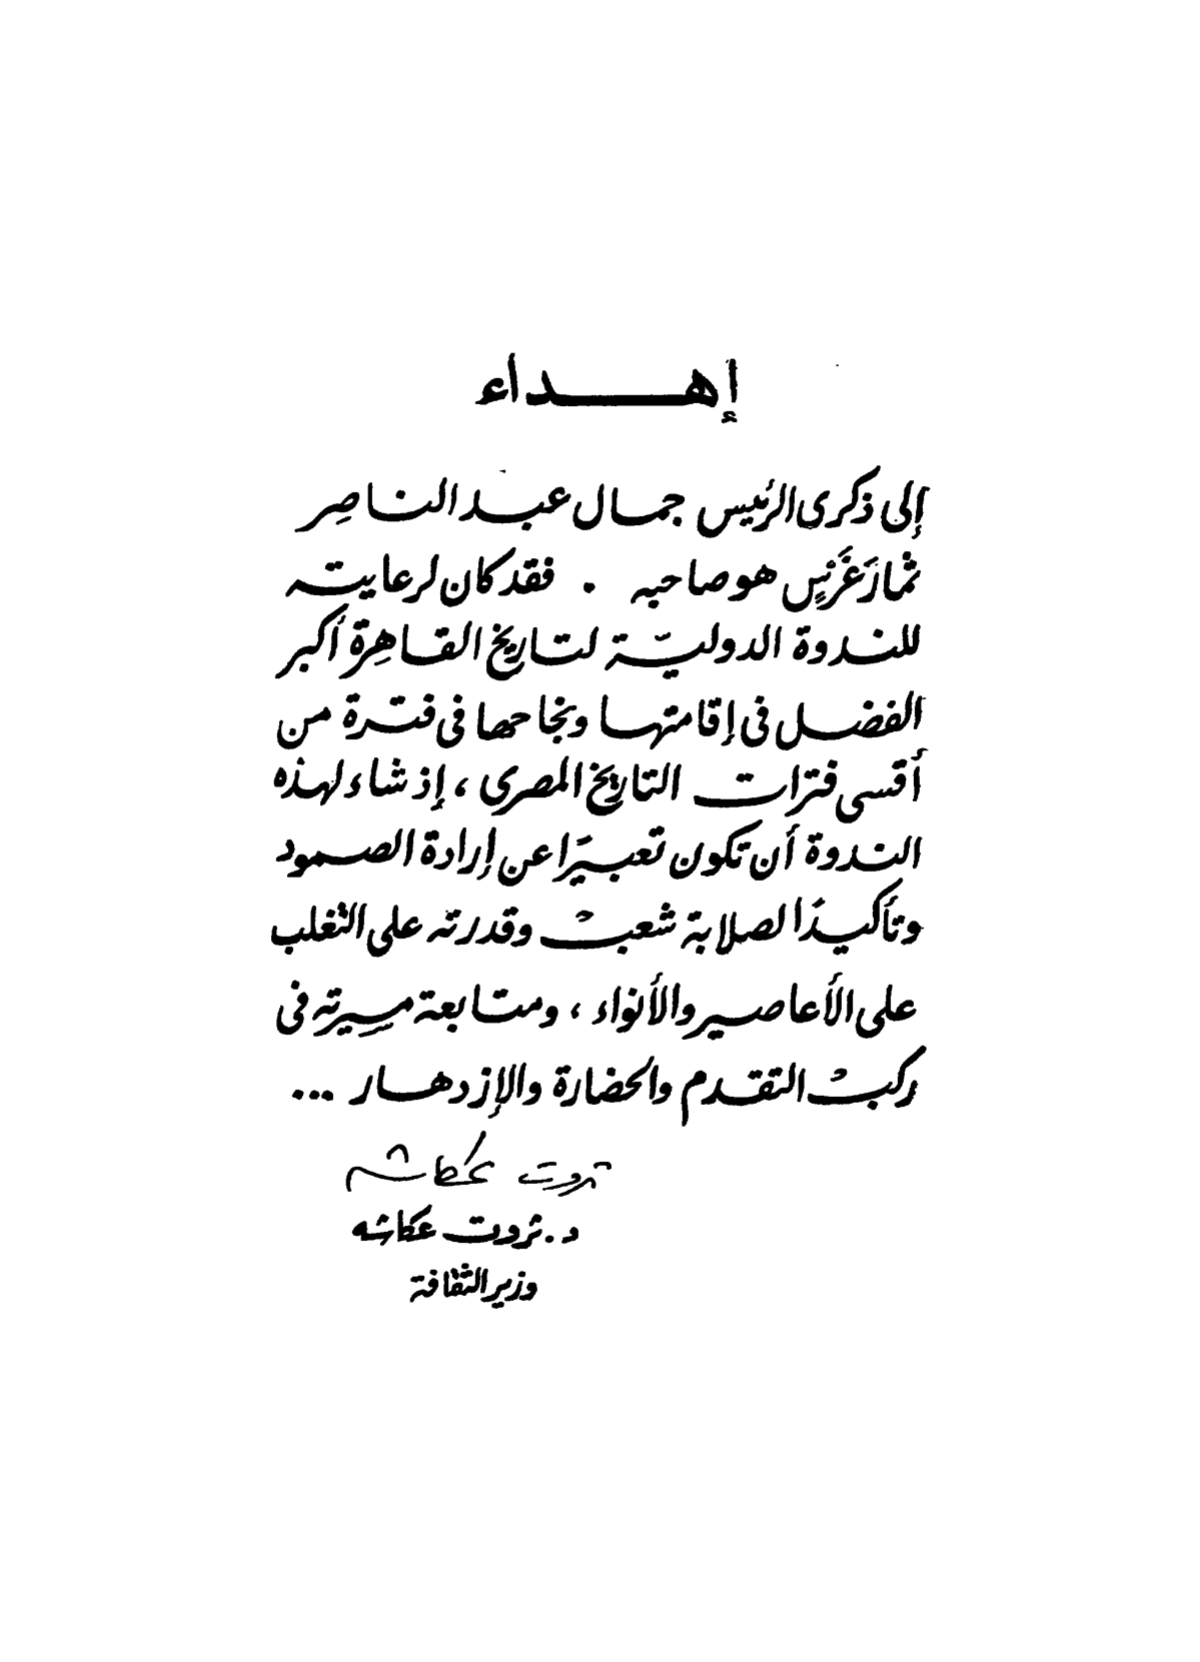 إهداء
إلى ذكرى الرئيس جمال عبد الناصِر
ثمارَ غَرَسٍ هو صاحبه . فقد كان لرعايته
للندوة الدوليّة لتاريخ القاهِرة أكبر
الفضل فى إقامتها ونجاحها فى فترة من
أقسى فترات التاريخ المصرى ، إذ شاء لهذه
الندوة أن تكون تعبيرًا عن إرادة الصمود
وتأكيدًا لصلابة شعبْ وقدرته على التغلب
على الأعاصير والأنواء ، ومتابعة مسِيرته فى
ركبْ التقدم والحضارة والإزدهار ...
ثروت عكاشه
د. ثروت عكاشه
وزير الثقافة